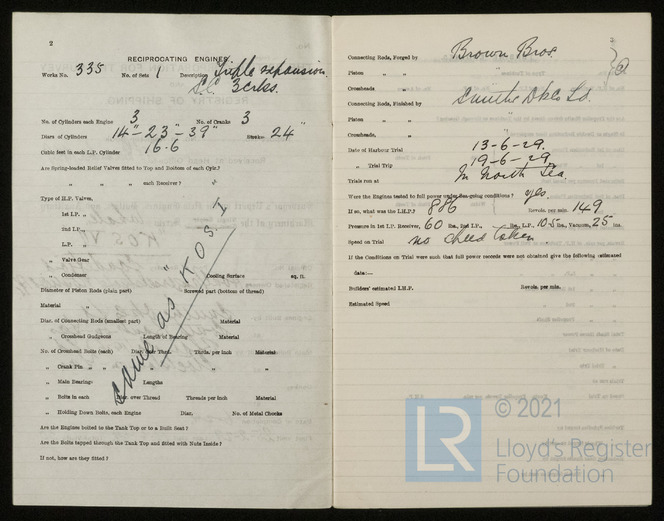 2
RECIPROCATING ENGINES
Works No. 335 No. of Sets 1 Description Triple expansion
S.C. 3crks.
No. of Cylinders each Engine 3 No. of Cranks 3
Diars of Cylinders 14"-23"-39" Stroke 24"
Cubic feet in each L.P. Cylinder 16.6
Are Spring-loaded Relief Valves fitted to Top and Bottom of each Cylr.?
„ „ „ each Receiver?
Type of H.P. Valves,
1st I.P. „
2nd I.P. „
L.P. „
„ Valve Gear
„ Condenser Cooling Surface sq. ft.
Diameter of Piston Rods (plain part) Screwed part (bottom of thread)
Material „
Diar. of Connecting Rods (smallest part) Material
„ Crosshead Gudgeons Length of Bearing Material
No. of Crosshead Bolts (each) Diar. over Thrd. Thrds. per Inch Material
„ Crank Pin „ „ „ „ „
„ Main Bearings Lengths
„ Bolts in each Diar. over Thread Threads per Inch Material
„ Holding Down Bolts, each Engine Diar. No. of Metal Chocks
Are the Engines bolted to the Tank Top or to a Built Seat?
Are the Bolts tapped through the Tank Top and fitted with Nuts Inside?
If not, how are they fitted?
Same as "KOS I"
Connecting Rods, Forged by Brown Bros.
Piston „ „
Crossheads, „
Connecting Rods, Finished by Smiths Dk Co Ld.
Piston „ „
Crossheads, „ „
Date of Harbour Trial 13-6-29.
„ Trial Trip 19-6-29.
Trials run at In North Sea.
Were the Engines tested to full power under Sea-going conditions? yes.
If so, what was the I.H.P.? 886 Revols. per min. 149
Pressure in 1st I.P. Receiver, 60 lbs., 2nd I.P., lbs., L.P., 10.5 lbs., Vacuum, 25 ins.
Speed on Trial no speed taken
If the Conditions on Trial were such that full power records were not obtained give the following estimated
data:—
Builders' estimated I.H.P. Revols. per min.
Estimated Speed
© 2021
LR Lloyd's Register
Foundation